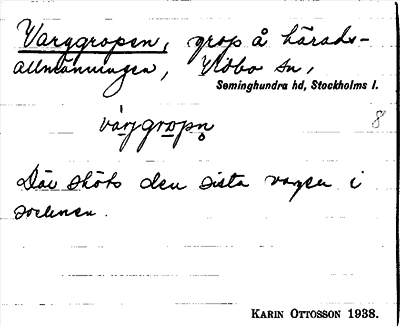 Varggropen, grop å härads-
allmänningen, Vidbo sn,
Seminghundra hd, Stockholms l.
varjgropn̥
8
Där sköts den sista vargen i
socknen.
KARIN OTTOSSON 1938.